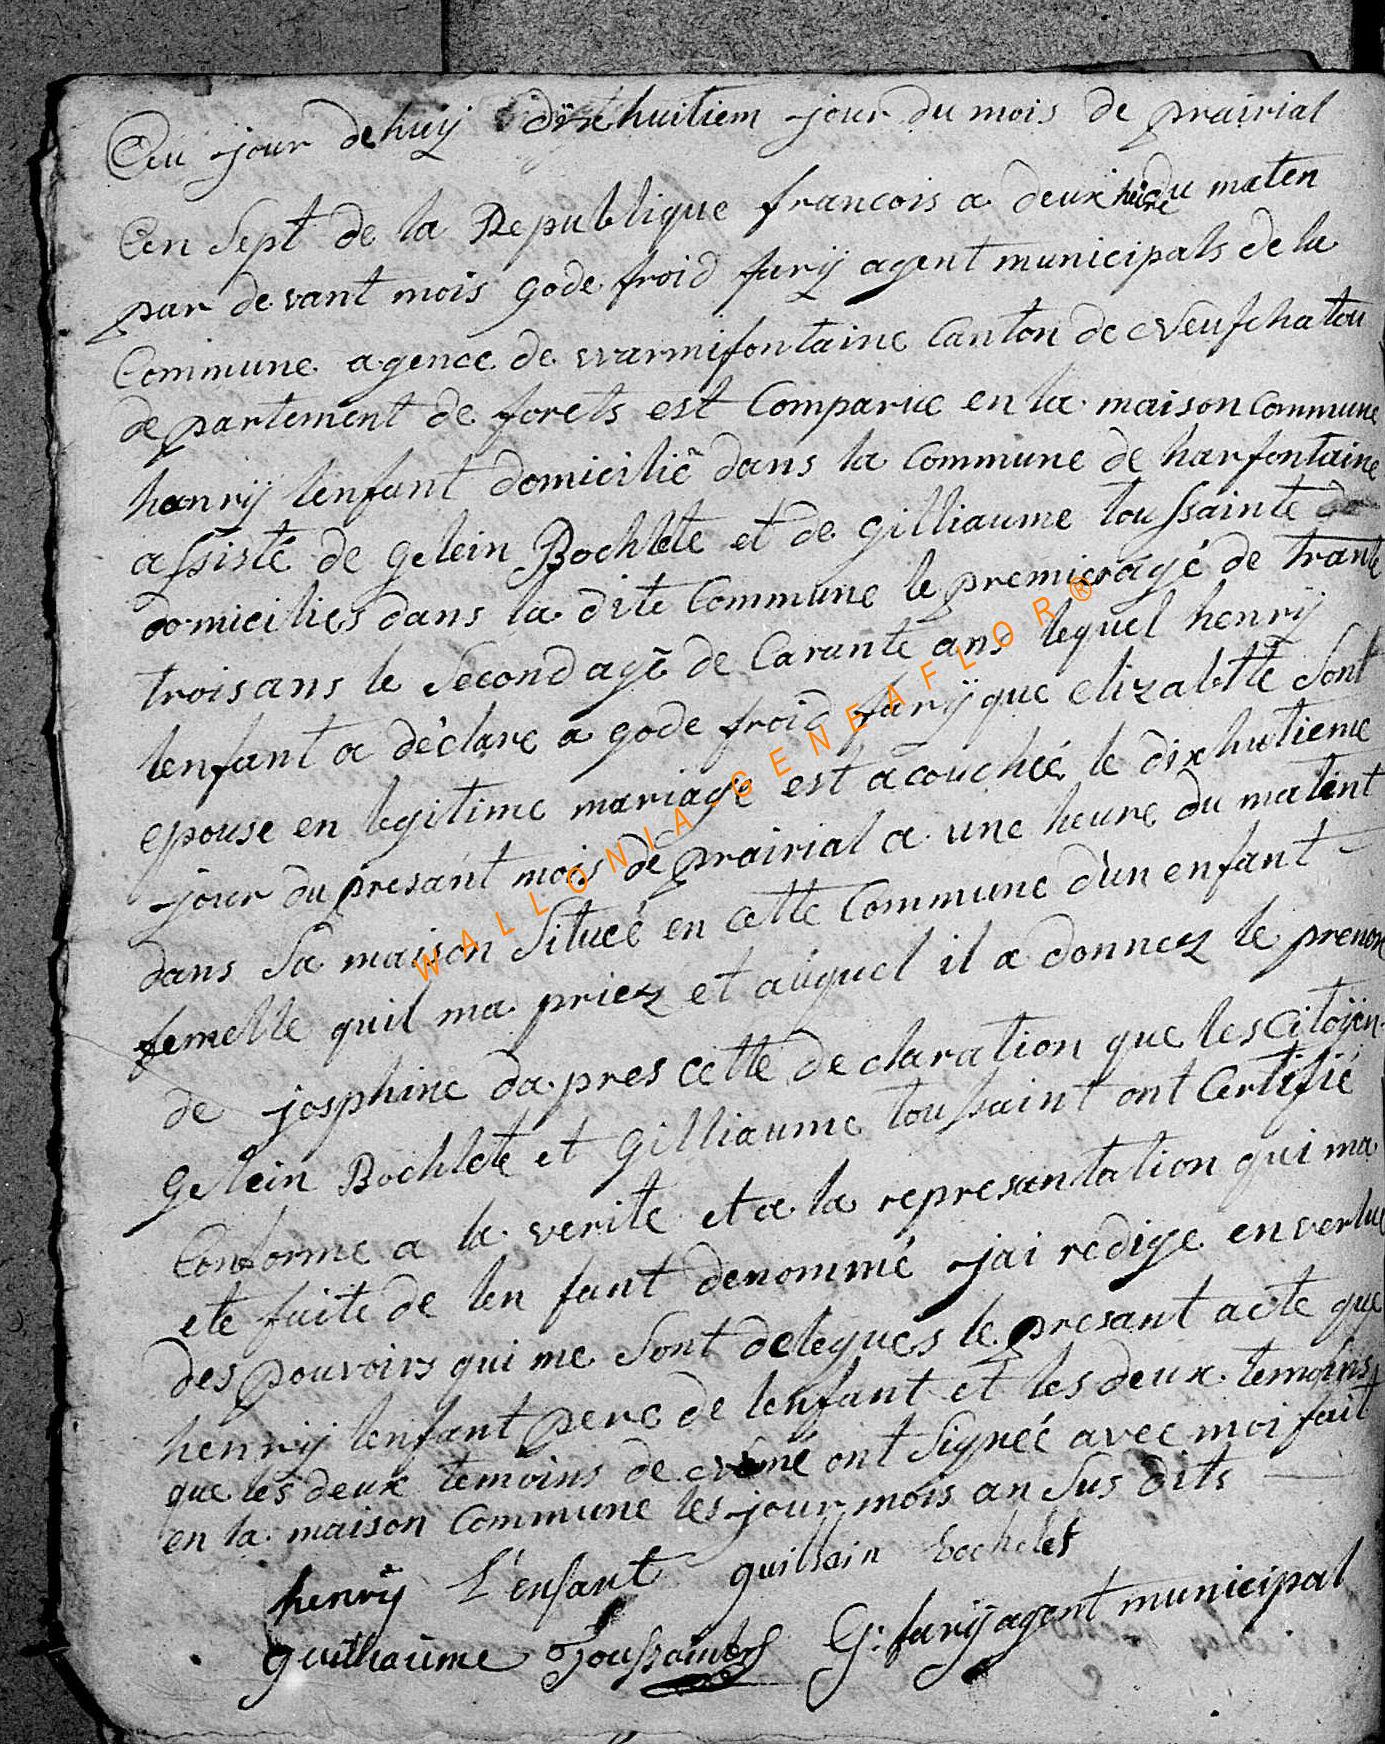 Ceu jour dehuij dixehuitiem jour du mois de prairial
Cen Sept de la Republique francois a deux heure du maten
par devant mois godefroid furij agent municipals de la
Commune agence de warmifontaine Canton de Neufchatou
departement de forets est Comparue en la maison commune
henrij lenfant domiciliê dans la Commune de harfontaine
assisté de gelein Bochlete et de gilliaume toussainte
domicilies dans la dite Commune le premier agé de trante
trois ans le Second agê de Carante ans lequel henrij
lenfant a déclare a godefroid furij que elizabtte Sont
epouse en legitime mariage est acouchée le dixhutieme
jour du presant mois de prairial a une heure du matint
dans Sa maison Situeé en cette Commune d'un enfant
femelle quil ma priez et auquel il a donnez le prenon
de josphine da pres cette declaration que les Citoÿen
gelein Bochlete et gilliaume toussaint ont Certifié
Conforme a la verite et a la represantation qui ma
ete faite de lenfant denommé jai redige en vertue
des pouvoirs qui me Sont delegués le presant acte que
henrij lenfant pere de lenfant et les deux temoins
que les deux temoins de ont Signeé avec moi fait
en la maison Commune les jour mois an Sus dits
henrij L'enfant guillain bochelet
guilliaume Toussaint G: furij agent municipal
WALLONIA-GENEAFLOR®